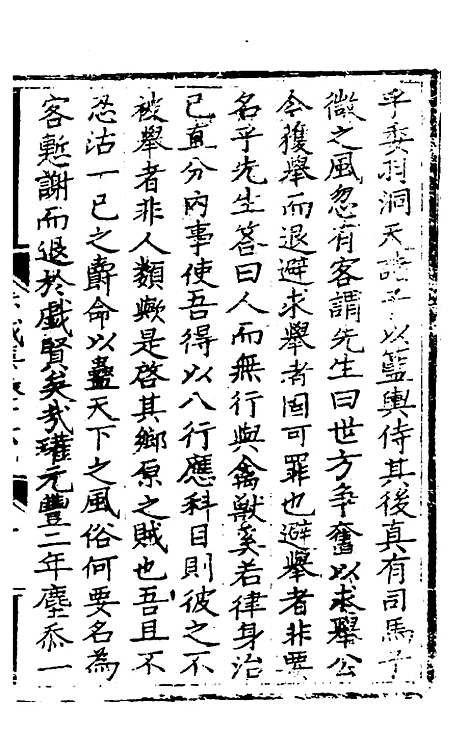 乎委羽洞天諸子以籃輿侍其後真有司馬子
微之風忽有客謂先生曰世方爭奮以求舉公
今獲舉而退避求舉者固可罪也避舉者非要
名乎先生答曰人而無行與禽獸奚若律身治
已直分內事使吾得以八行應科目則彼之不
被舉者非人類歟是啓其鄉原之賊也吾且不
恐沽一已之爵命以蠱天下之風俗何要名為
客慙謝而退於戲賢矣哉瓘元豐二年塵忝一